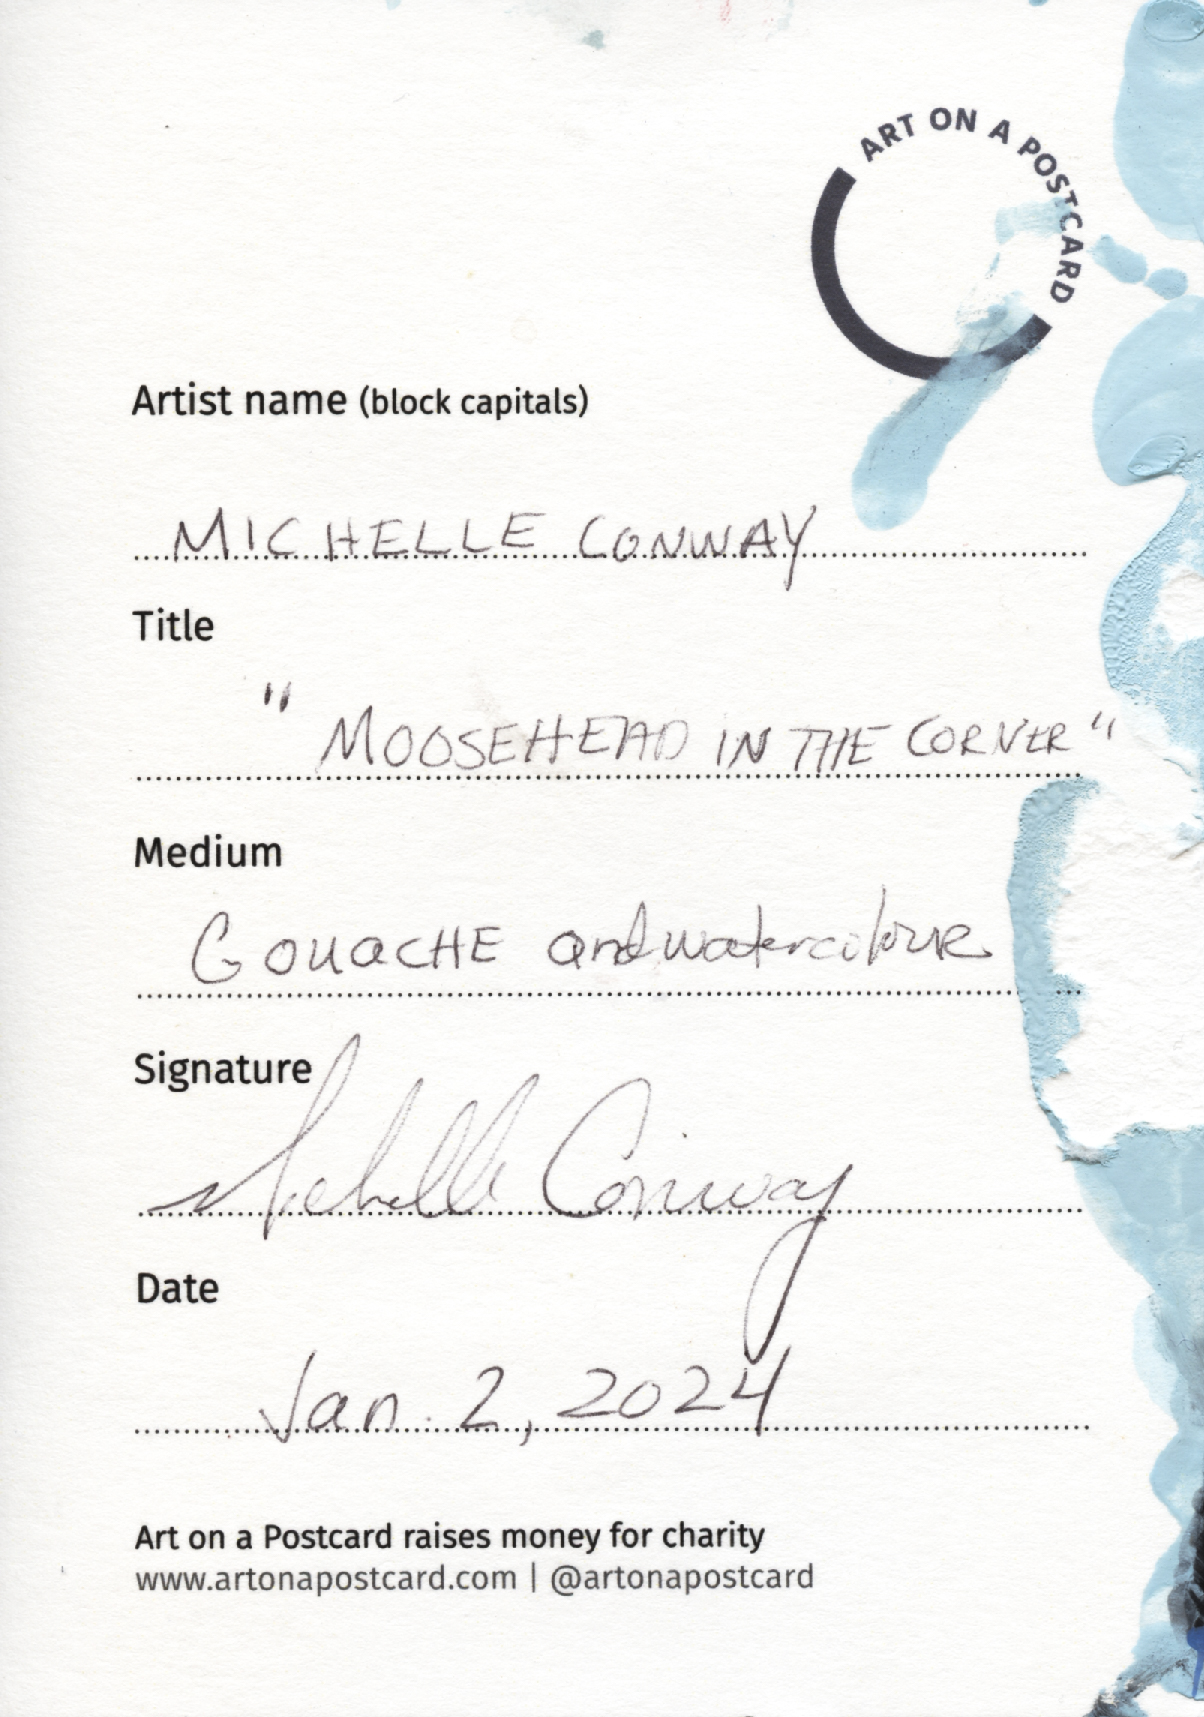 ART ON A POSTCARD
Artist name (block capitals)
MICHELLE CONWAY
Title
"MOOSEHEAD IN THE CORNER"
Medium
GOUACHE and watercolour
Signature
Michelle Conway
Date
Jan. 2, 2024
Art on a Postcard raises money for charity
www.artonapostcard.com | @artonapostcard